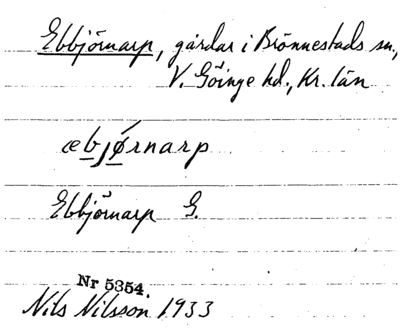 Ebbjörnarp, gårdar i Brönnestads sn.,
V. Göinge hd., Kr. län
æbjǿrnarp
Ebbjörnarp G.
Nr 5354.
Nils Nilsson 1933